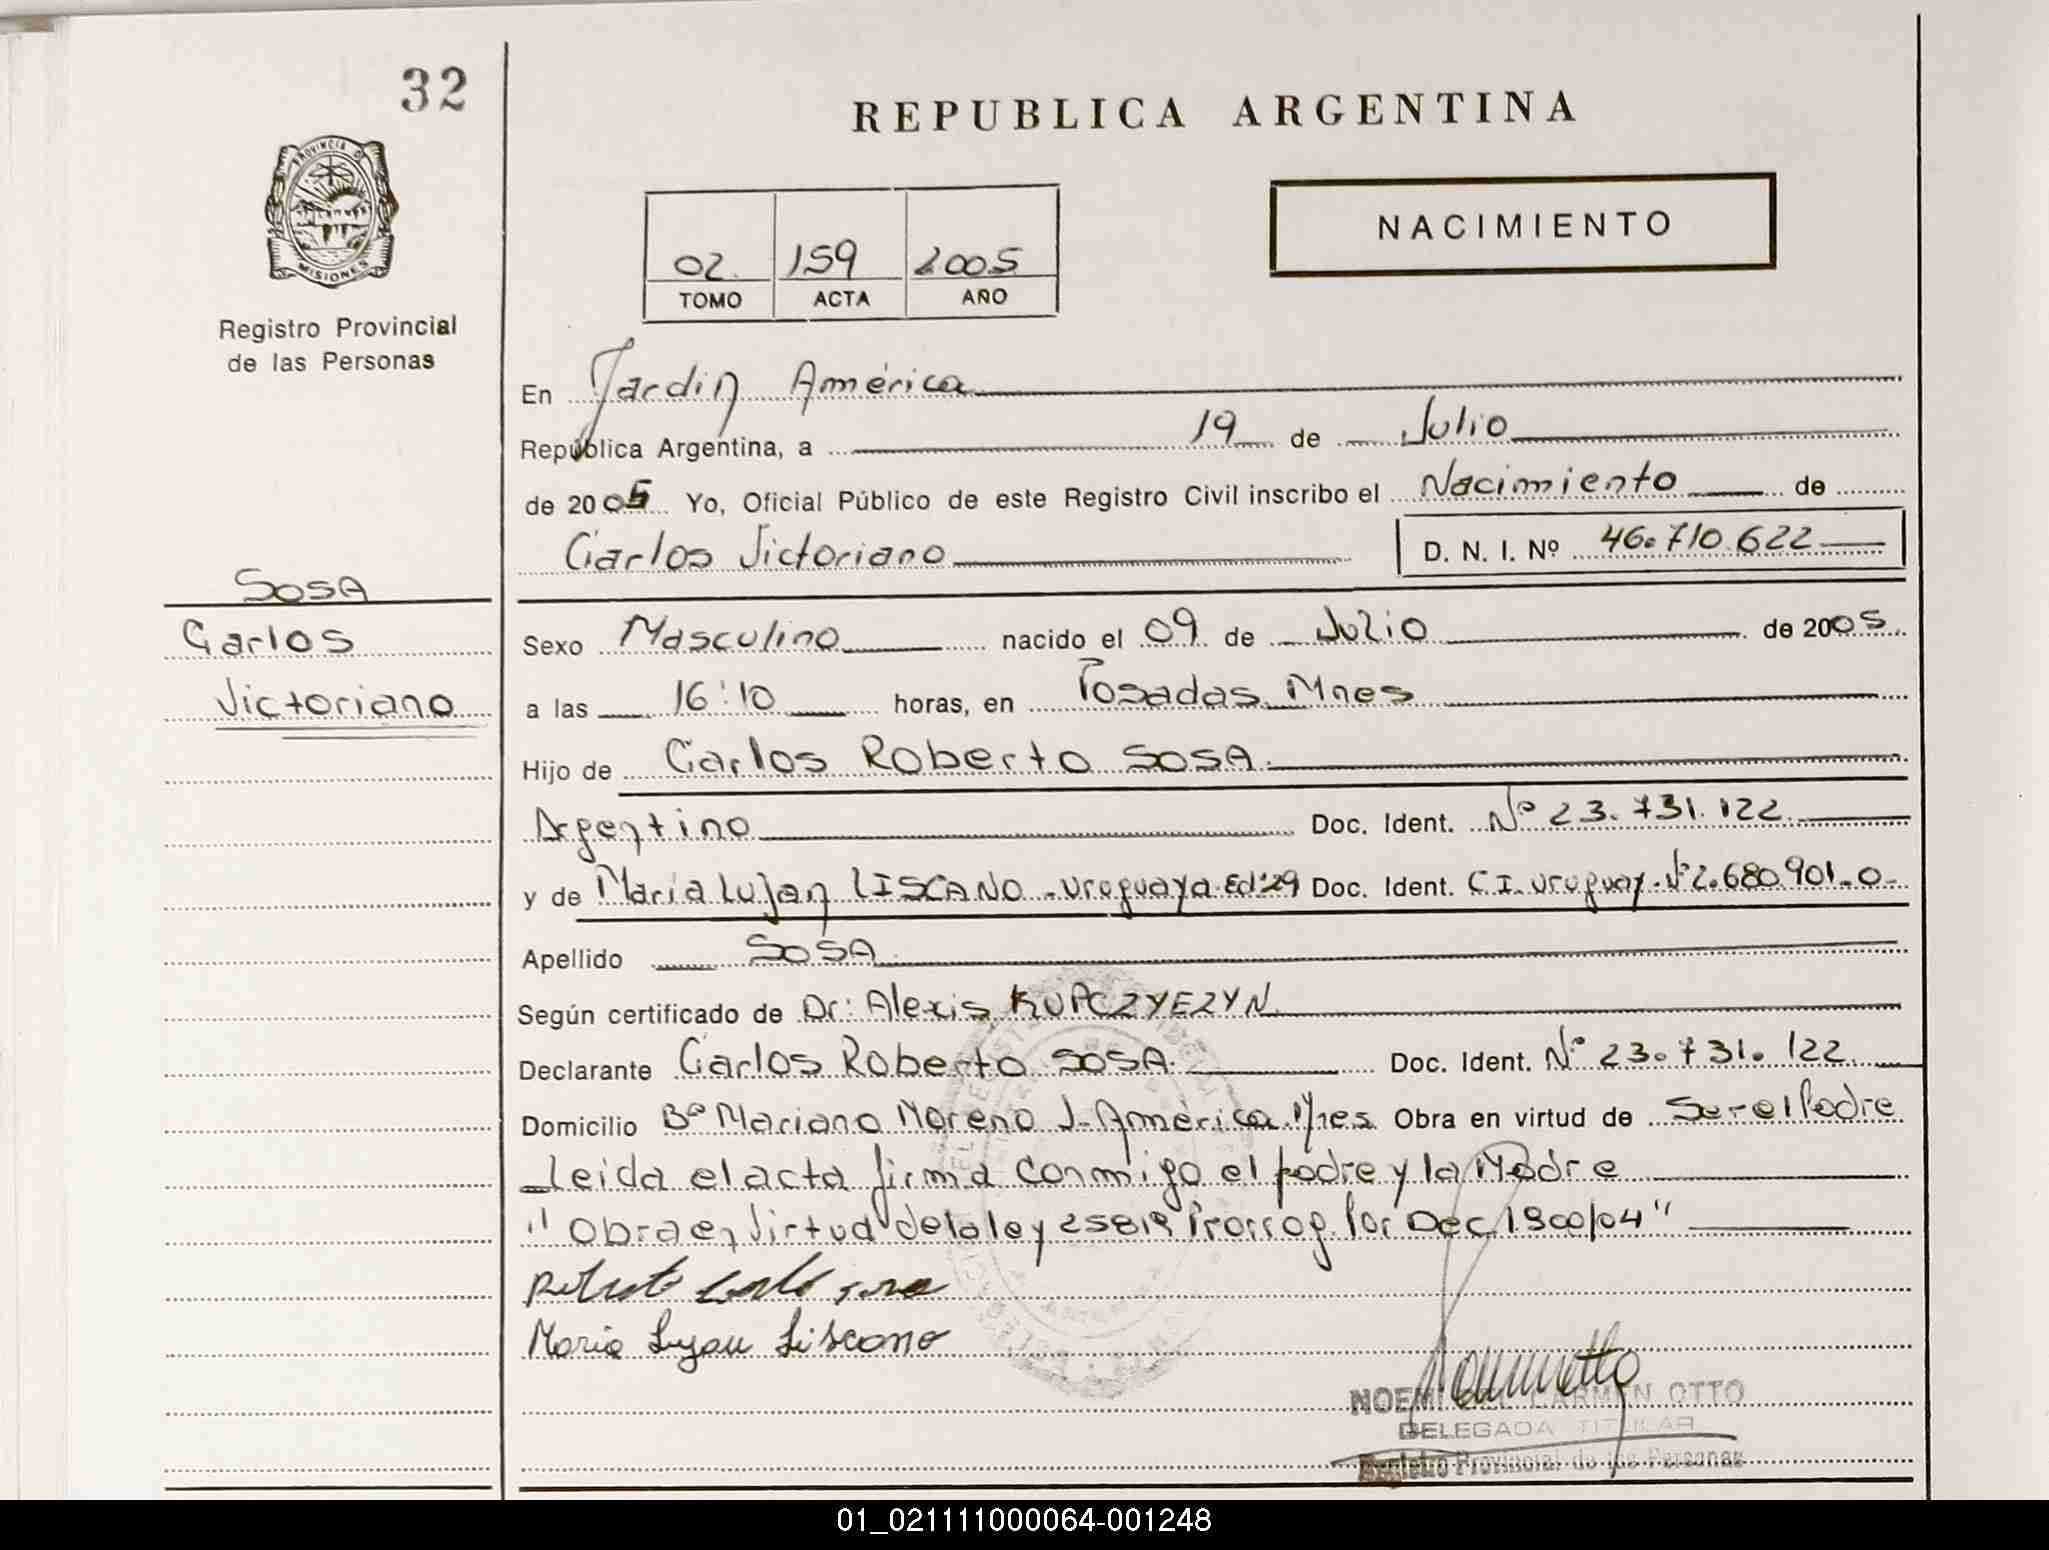 32
REPUBLICA ARGENTINA
PROVINCIA D
MISIONES
Registro Provincial
de las Personas
02 159 2005
TOMO ACTA AÑO
NACIMIENTO
En Jardin América
República Argentina, a 19 de Julio
de 2005 Yo, Oficial Público de este Registro Civil inscribo el Nacimiento de
Carlos Victoriano D. N. I. Nº 46.710.622
SOSA
Carlos
Victoriano
Sexo Masculino nacido el 09 de Julio de 2005
a las 16:10 horas, en Posadas Mnes
Hijo de Carlos Roberto SOSA
Argentino Doc. Ident. Nº 23.731.122
y de Maria Lujan LISCANO - Uruguaya Ed: 29 Doc. Ident. C.I. Uruguay. Nº 2.680.901-0-
Apellido SOSA
Según certificado de Dr: Alexis KUPCZYEZYN
Declarante Carlos Roberto SOSA Doc. Ident. Nº 23.731.122
Domicilio Bº Mariano Moreno J. América Mnes Obra en virtud de Ser el Padre
Leida el acta firma conmigo el padre y la Madre
"Obra en Virtud de la ley 25819 Prorrog. Por Dec 1.900/04"
Maria Lujan Liscano
NOEMI DEL CARMEN OTTO
DELEGADA TITULAR
Registro Provincial de las Personas
01_021111000064-001248